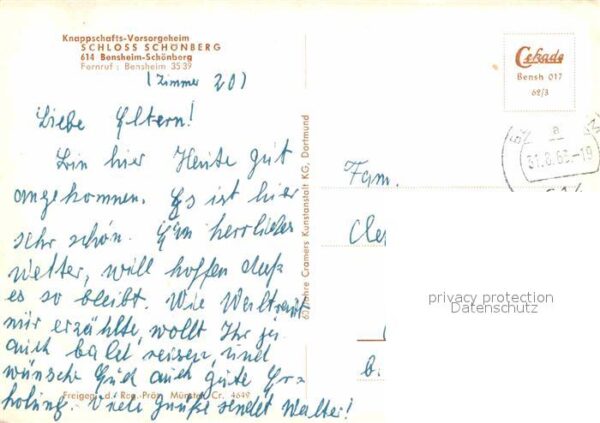 Knappschafts-Vorsorgeheim
SCHLOSS SCHÖNBERG
614 Bensheim-Schönberg
Fernruf: Bensheim 3539
(Zimmer 20)
Liebe Eltern!
Bin hier Heute gut
angekommen. Es ist hier
sehr schön. Ein herrliches
Wetter, will hoffen daß
es so bleibt. Wie Waltraut
mir erzählte, wollt Ihr ja
auch bald reisen, und
wünsche Euch auch gute Er-
holung. Viele Grüße sendet Walter!
Freigeg. d. Reg.-Präs. Münster Cr. 4649
Jahre Cramers Kunstanstalt KG, Dortmund
Cekade
Bensh 017
62/3
a
31.8.66-19
614
Fam.
b.
privacy protection
Datenschutz